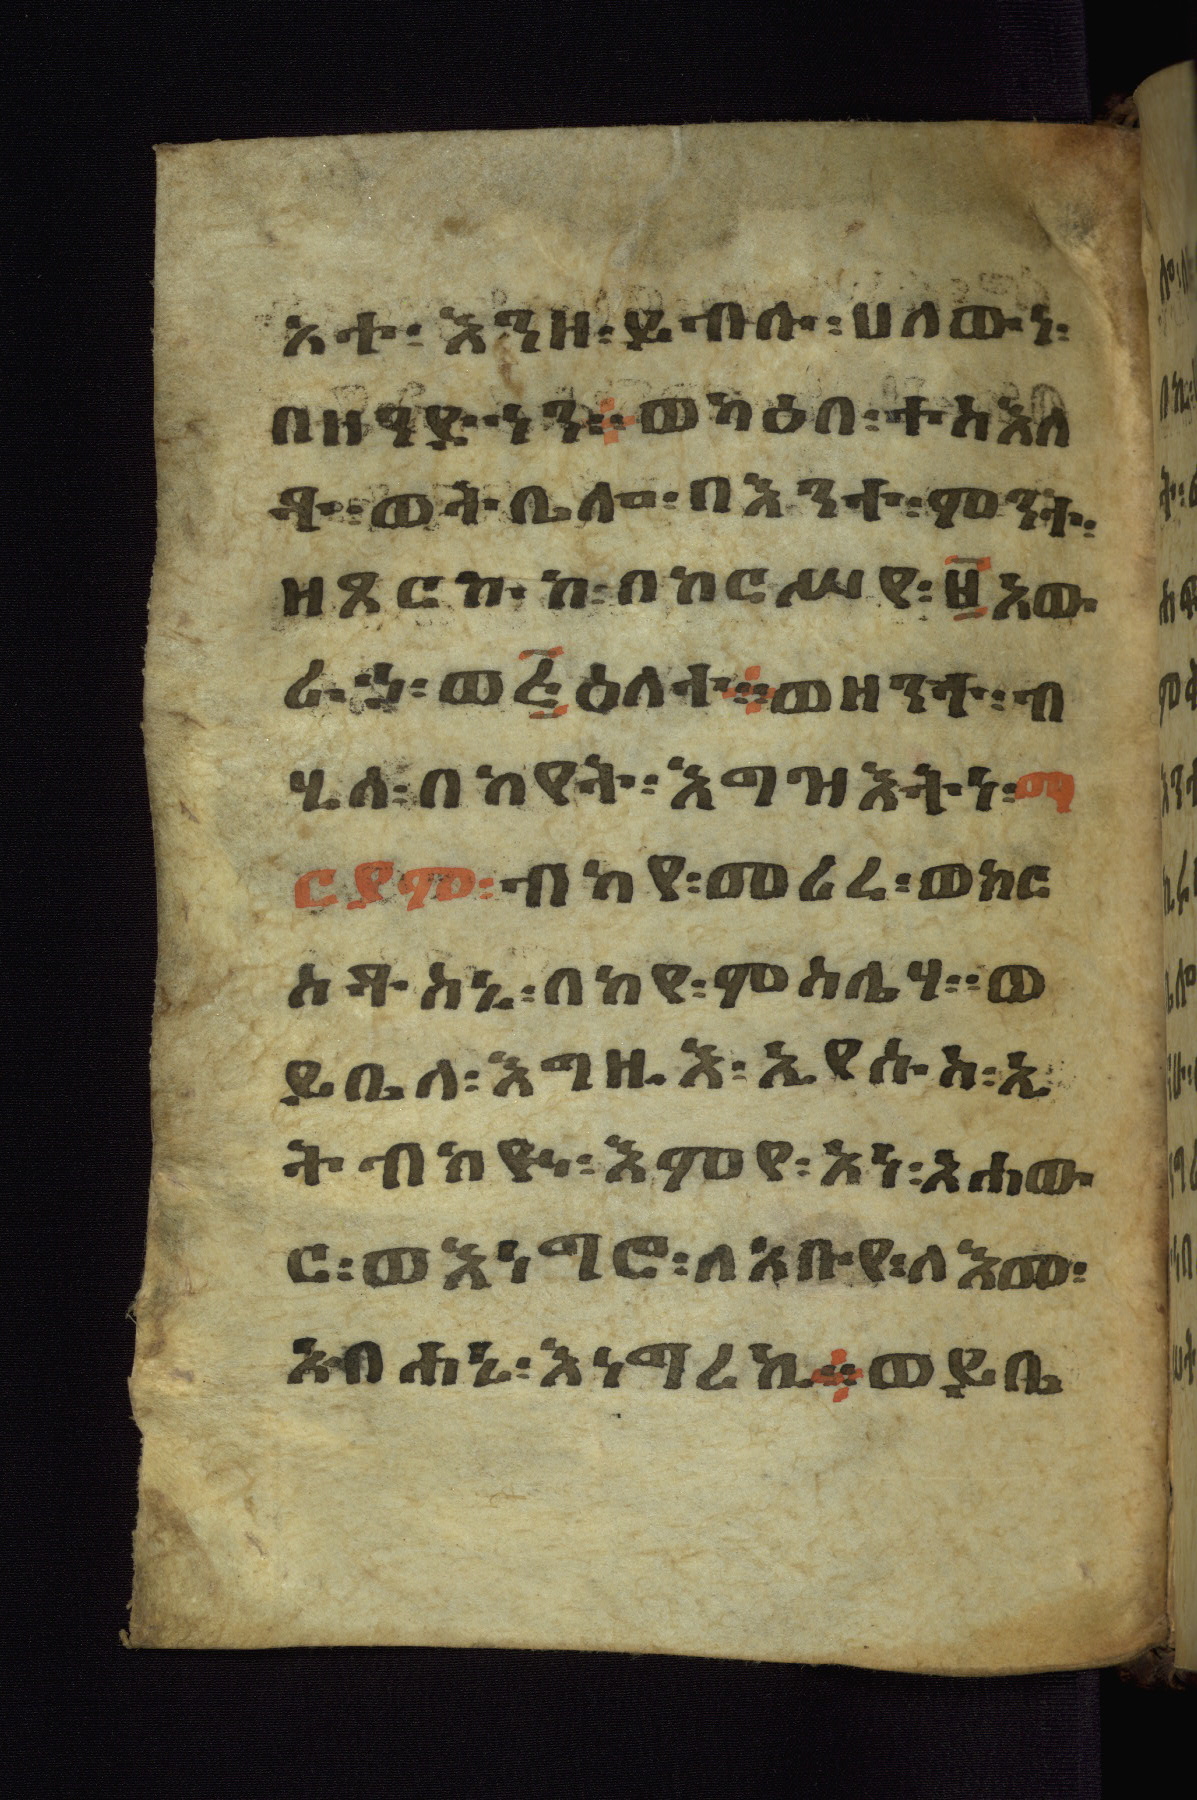 አተ፡ እንዘ፡ ይብሉ፡ ሀለውነ፡
በዘዓይነን፨ ወካዕበ፡ ተስእለ
ቶ፡ ወትቤሎ፡ በእንተ፡ ምንት፡
ዘጾርኩከ፡ በከርሥየ፡ ፱አው
ራኃ፡ ወ፭ዕለተ፨ ወዘንተ፡ ብ
ሂላ፡ በከየት፡ እግዝእትነ፡ ማ
ርያም፡ ብካየ፡ መሪረ፡ ወክር
ስቶስኒ፡ በከየ፡ ምስሌሃ፡፡ ወ
ይቤላ፡ እግዚእ፡ ኢየሱስ፡ ኢ
ትብከዪ፡ እምየ፡ አነ፡ አሐው
ር፡ ወእነግሮ፡ ለአቡየ፡ ለእመ፡
አብሐኒ፡ እነግረኪ፨ ወይቤ